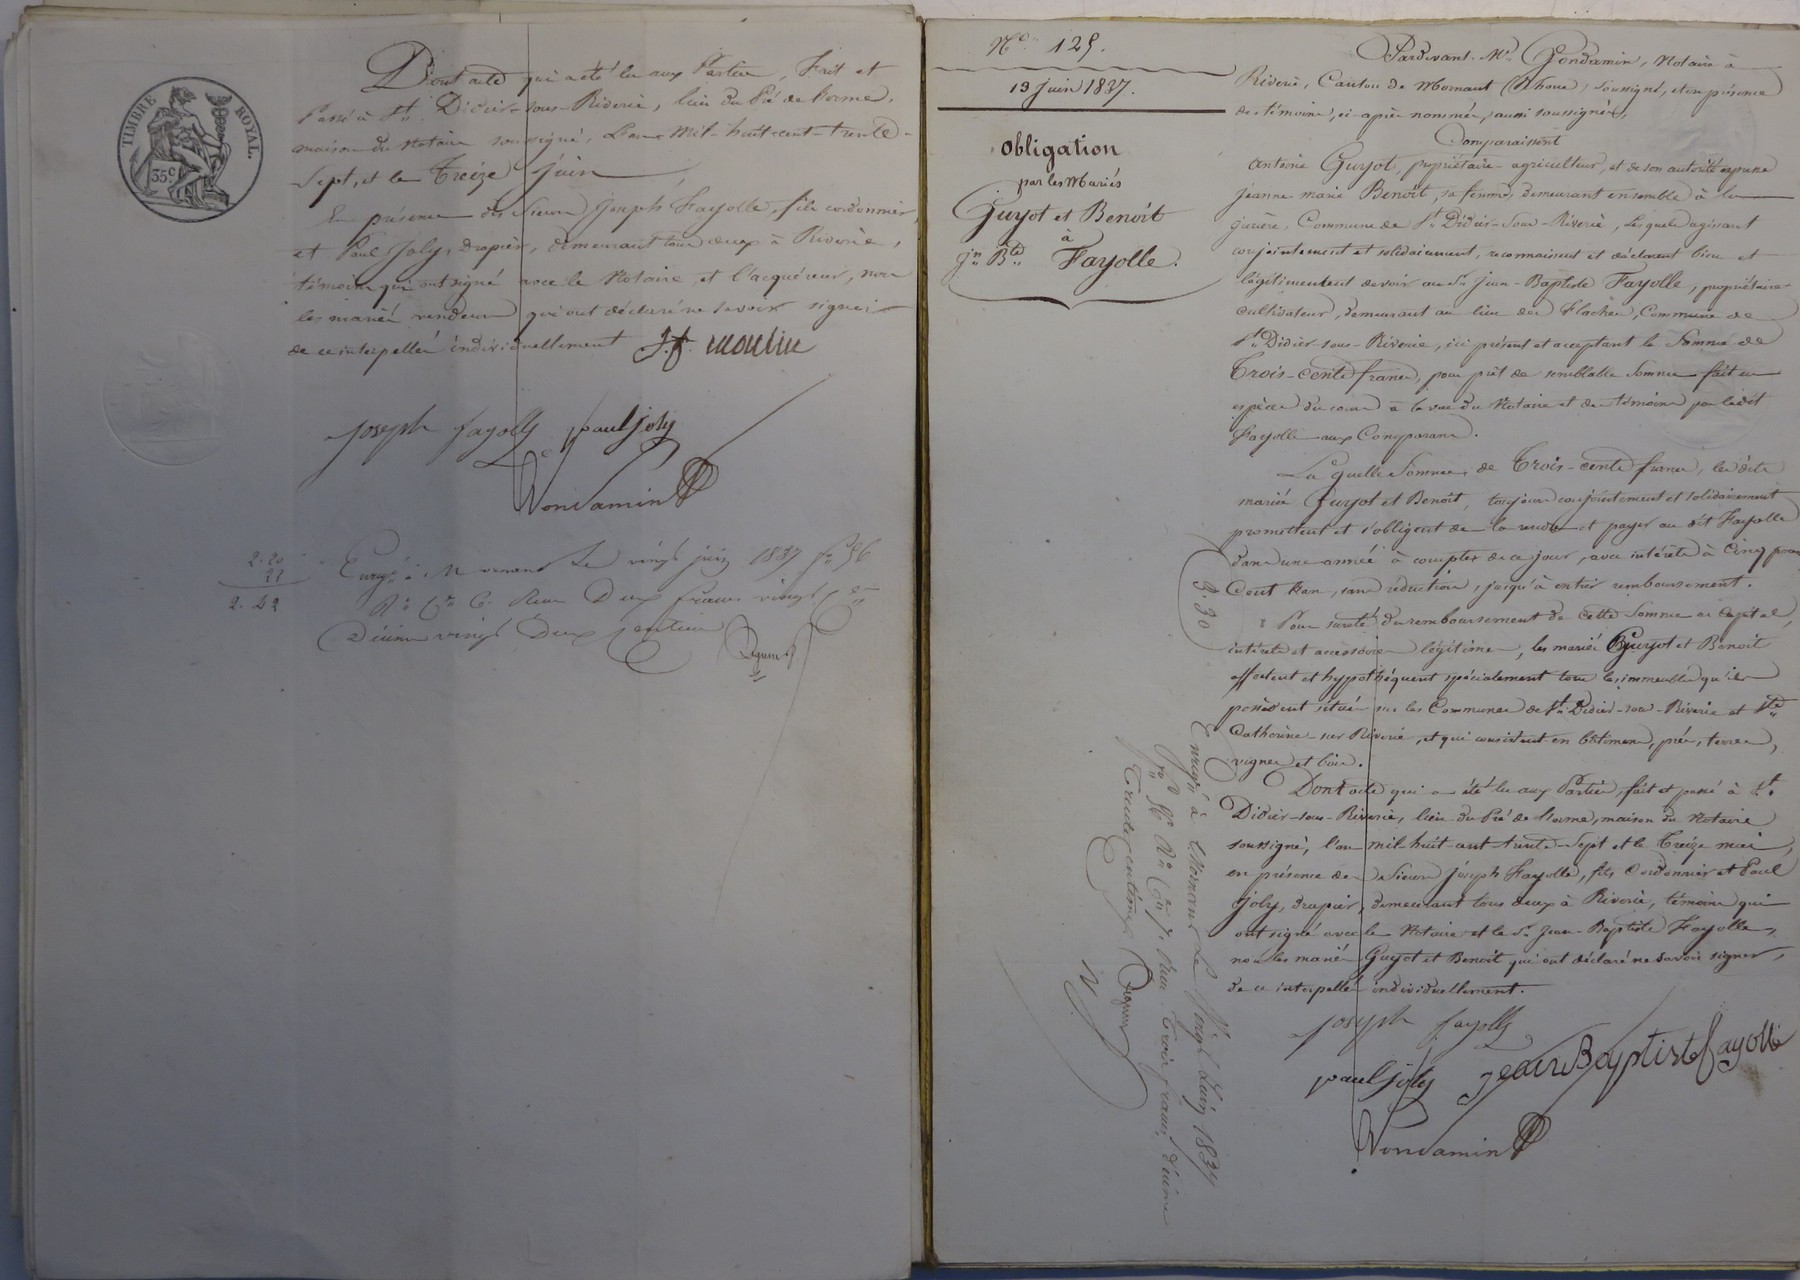 TIMBRE ROYAL.
35c.
Dont acte qui a été lu aux Parties, Fait et
Passé à St. Didier-sous-Riverie, lieu du Pré de
maison du Notaire soussigné, L'an mil-huit-cent-trente-
Sept, et le Treize Juin
En présence des Sieurs Joseph Fayolle, fils cordonnier,
et Paul Joly, drapier, demeurant tous deux à Riverie,
témoins qui ont signé avec le Notaire, et l'acquéreur, non
les mariés vendeurs qui ont déclaré ne savoir signer
de ce interpellés individuellement J.f. moulin
joseph fayolle paul joly
Condamin
2. 20
22
2. 42
Enregé à Mornant Le vingt juin 1837 fo 56
Ro Ce 6. Reçu Deux francs vingt cens
Décime vingt Deux centimes
No 125.
13 Juin 1837.
Obligation
par les Mariés
Guyot et Benoît
à
Jn Bte Fayolle.
Pardevant Me Condamin, Notaire à
Riverie, Canton de Mornant (Rhône) soussigné, et en présence
des témoins, ci-après nommés, aussi soussignés,
Comparaissent
Antoine Guyot, propriétaire-agriculteur, et de son autorité expresse
Jeanne marie Benoît, sa femme, demeurant ensemble à la
Commune de St. Didier-Sous-Riverie, Lesquels agissant
conjointement et solidairement, reconnaissent et déclarent bien et
légitimement devoir au Sr Jean-Baptiste Fayolle, propriétaire-
cultivateur, demeurant au lieu des Flaches, Commune de
St. Didier-sous-Riverie, ici présent et acceptant la Somme de
Trois-cents francs, pour prêt de semblable Somme fait en
espèces du cours à la vue du Notaire et des témoins par ledit
Fayolle aux Comparans.
Laquelle Somme de Trois-cents francs, les dits
mariés Guyot et Benoît, toujours conjointement et solidairement
promettent et s'obligent de la rendre et payer au dit Fayolle
dans une année à compter de ce jour, avec intérêts à Cinq pour
Cent l'an, sans réduction, jusqu'à entier remboursement.
Pour sureté du remboursement de cette Somme en Capital,
intérêts et accessoires légitimes, les mariés Guyot et Benoît
affectent et hypothéquent spécialement tous les immeubles qu'ils
possèdent situés sur les Communes de St. Didier-sous-Riverie et Ste
Catherine-sur Riverie, et qui consistent en bâtimens, prés, terres,
vignes et bois.
Dont acte qui a été lu aux Parties, fait et passé à St.
Didier-sous-Riverie, lieu du Pré de maison du Notaire
soussigné, l'an mil-huit-cent trente-Sept et le Treize mai,
en présence des Sieurs Joseph Fayolle, fils Cordonnier et Paul
Joly, drapier, demeurant tous deux à Riverie, témoins qui
ont signé avec le Notaire et le Sr Jean-Baptiste Fayolle,
non les mariés Guyot et Benoît qui ont déclaré ne savoir signer,
de ce interpellés individuellement.
joseph fayolle
paul joly jean Baptiste fayolle
Condamin
3. 30
Enregé à Mornant Le Vingt Juin 1837
fo 56 Ro Ce 7. Reçu Trois francs, décime
Trente centimes